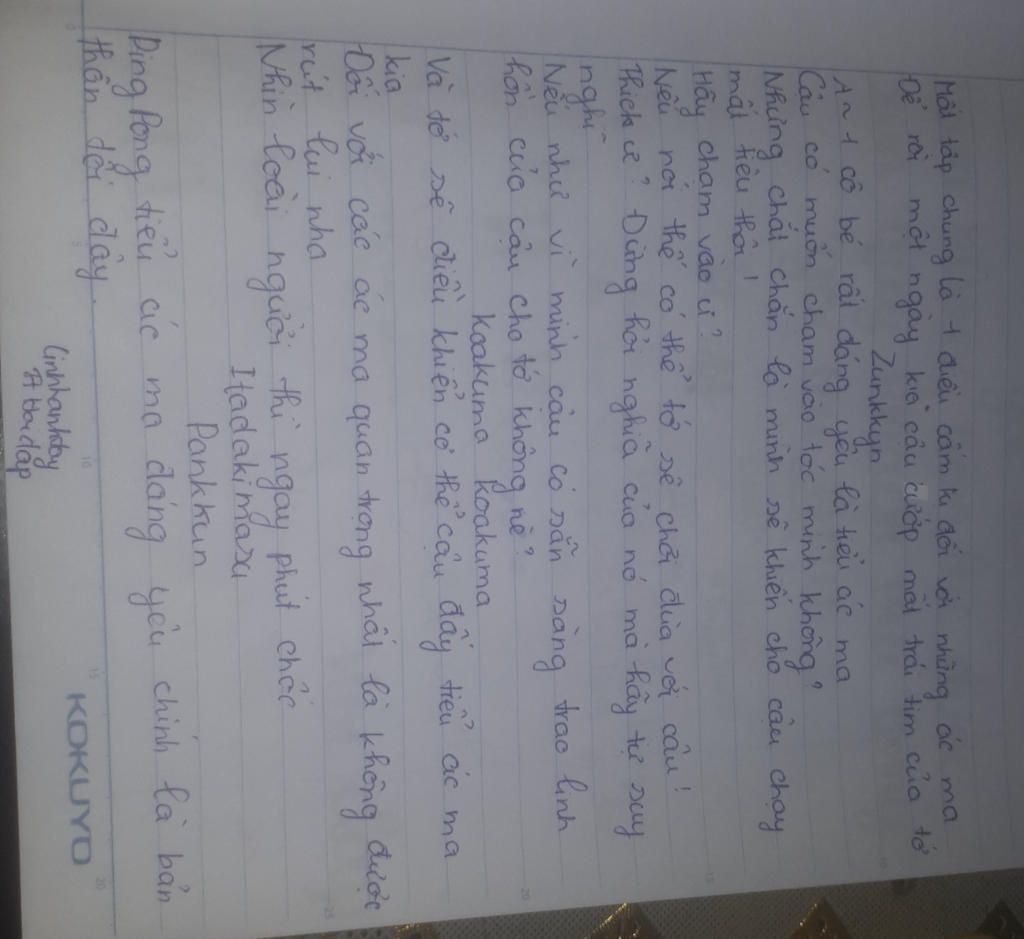 Mất tập chung là 1 điều cấm kị đối với những ác ma
Để rồi một ngày kia cậu cướp mất trái tim của tớ
Zunkkyn
A ~ 1 cô bé rất đáng yêu là tiểu ác ma
Cậu có muốn chạm vào tóc mình không?
Nhưng chắc chắn là mình sẽ khiến cho cậu chạy
mất tiêu thôi!
Hãy chạm vào ư?
Nếu nói thế có thể tớ sẽ chơi đùa với cậu!
Thích ư? Đừng hỏi nghĩa của nó mà hãy tự suy
nghĩ
Nếu như vì mình cậu có sẵn sàng trao linh
hồn của cậu cho tớ không nè?
Koakuma Koakuma
Và tớ sẽ điều khiển cơ thể cậu đấy tiểu ác ma
kia
Đối với các ác ma quan trọng nhất là không được
rút lui nha
Nhìn loài người thì ngay phút chốc
Itadakimasu
Pankkun
Ping Pong tiểu ác ma đáng yêu chính là bản
thân tớ đây.
linhhanhtay
hoidap
KOKUYO